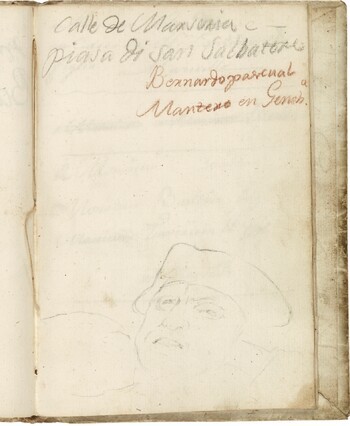 Calle de
piasa di San Salbatore
Bernardo pascual
Mantero en Genob.ª